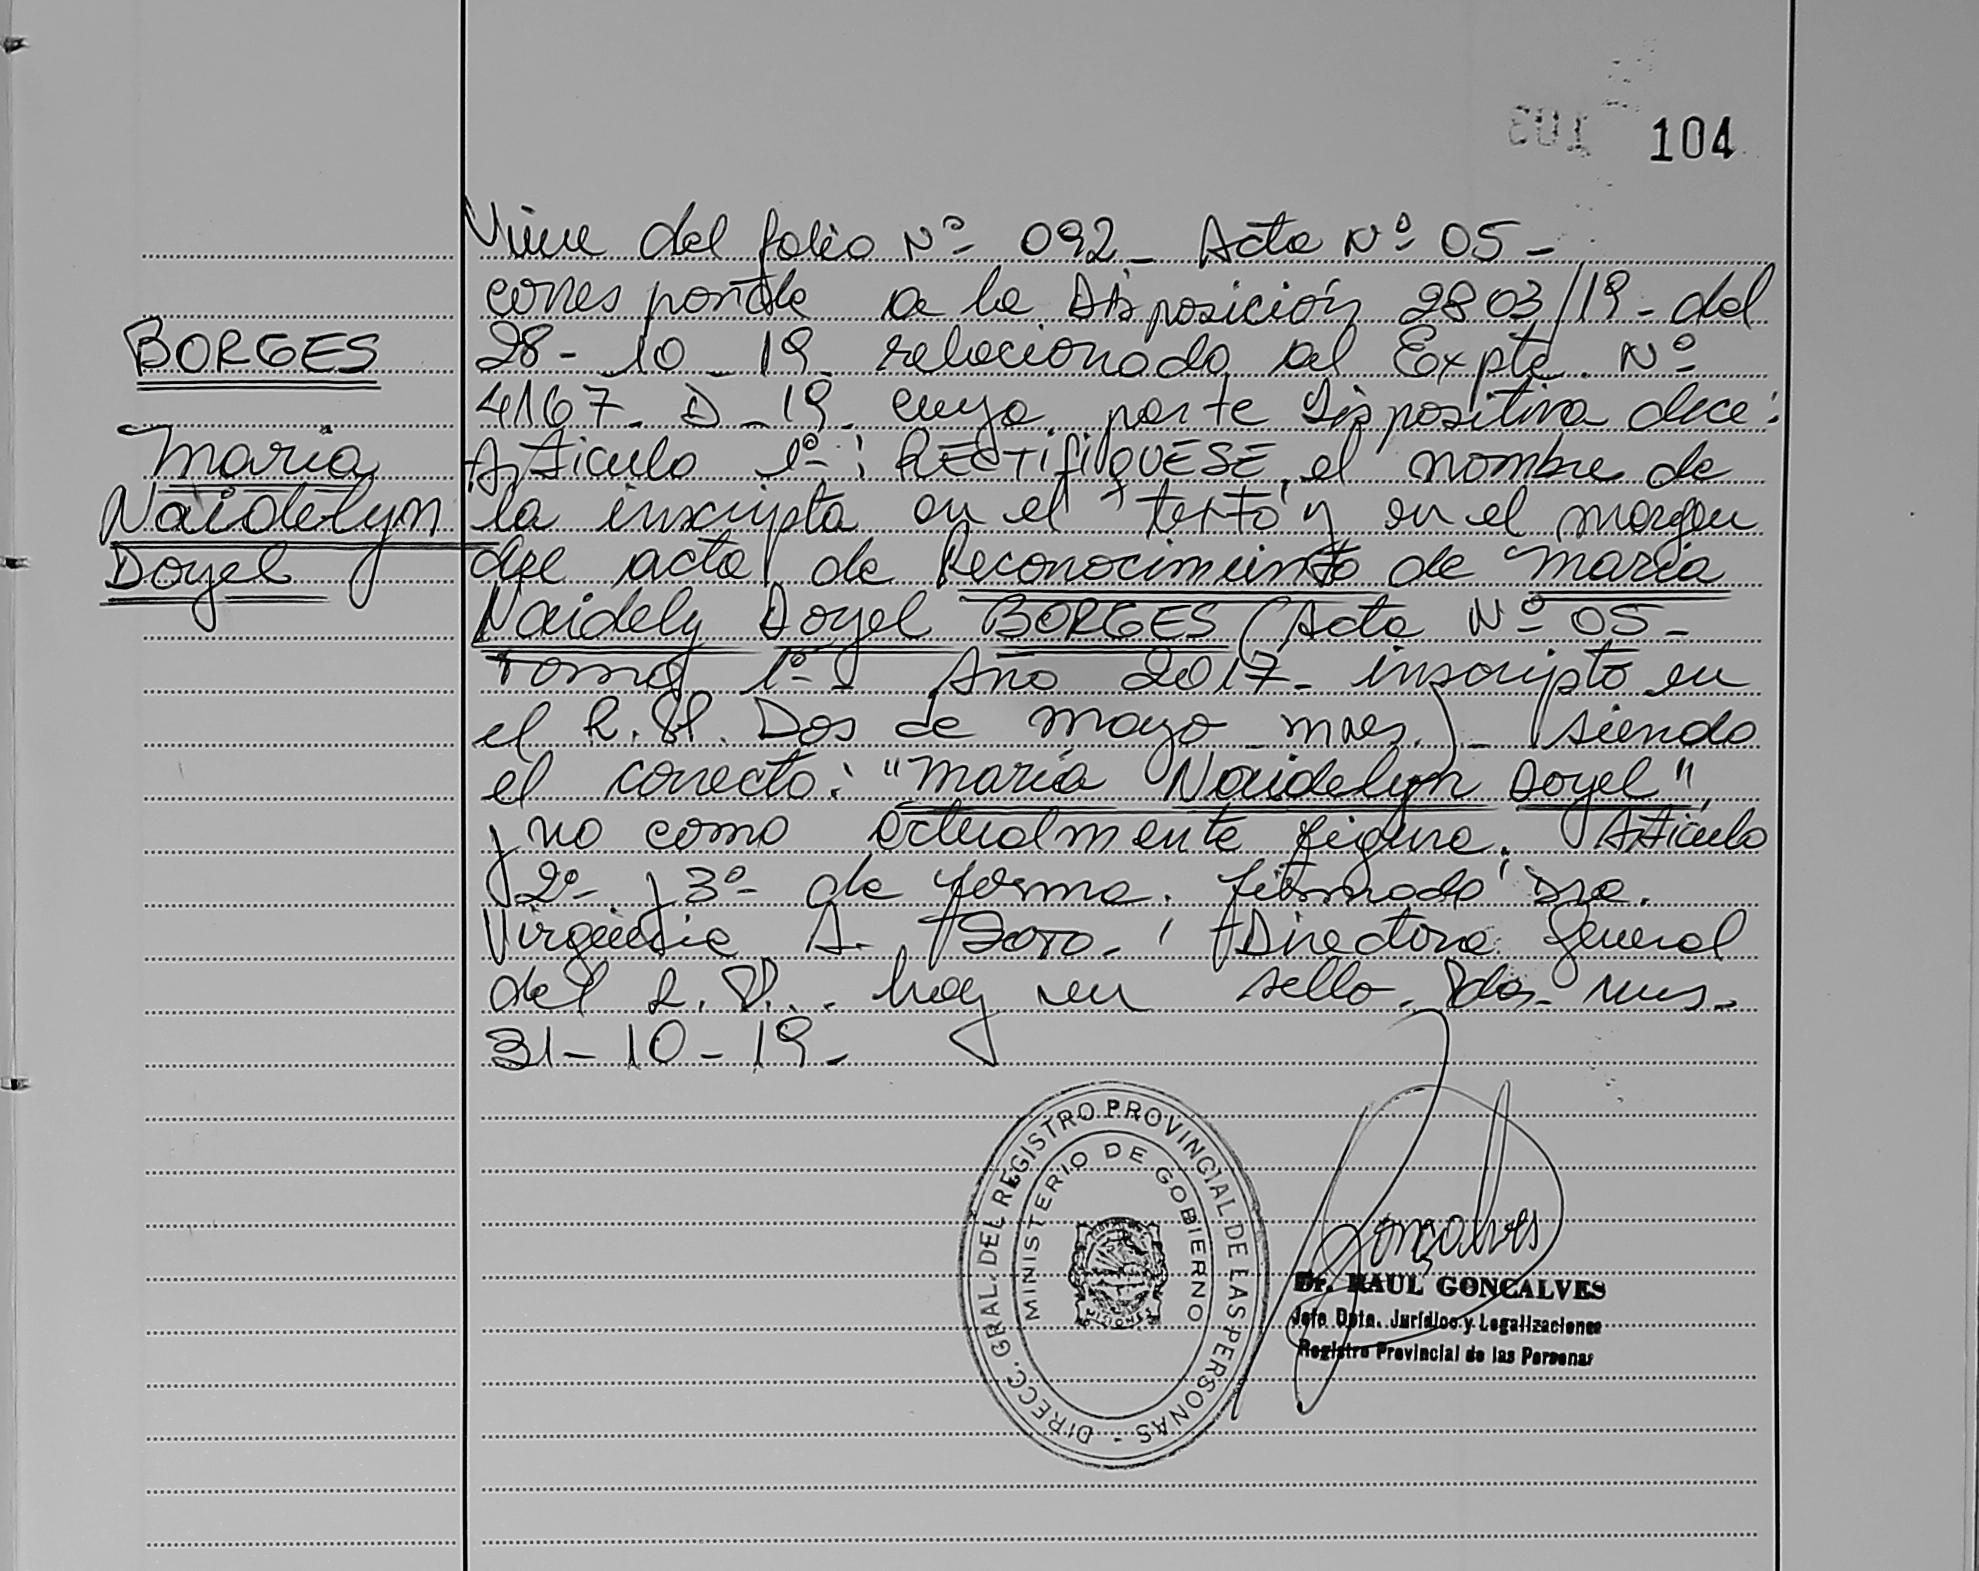 104
BORGES
Maria
Naidelyn
Doyel
Viene del folio Nº 092_ Acta Nº 05 -
corresponde a la Disposición 2803/19 - del
28 - 10 - 19 relacionado al Expte. Nº
4167 - D - 19 cuya parte Dispositiva dice:
Articulo 1º: RECTIFIQUESE, el nombre de
la inscripta en el texto y en el margen
del acta de Reconocimiento de Maria
Naidely Doyel BORGES (Acta Nº 05 -
Tomo 1º Año 2017 - inscripto en
el R.P. Dos de Mayo Mnes.) - siendo
el correcto: "Maria Naidelyn Doyel",
y no como actualmente figura. Articulo
2º y 3º de forma. Firmado Dra.
A. Directora General
del R.P. hay un sello. Pdas. Mnes.
31 - 10 - 19 -
DIRECC. GRAL. DEL REGISTRO PROVINCIAL DE LAS PERSONAS -
MINISTERIO DE GOBIERNO
MISIONES
Gonçalves
Dr. RAUL GONCALVES
Jefe Dpto. Jurídico y Legalizaciones
Registro Provincial de las Personas